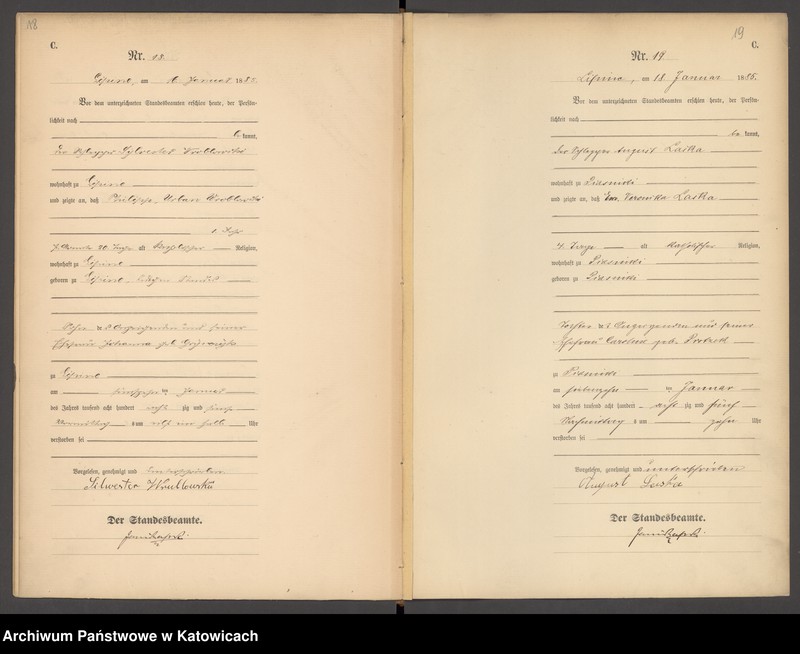 18
C.
Nr. 18.
Lipine, am Januar 188
Vor dem unterzeichneten Standesbeamten erschien heute, der Persön-
lichkeit nach
be kannt,
der Schlepper Sylvester
wohnhaft zu Lipine
und zeigte an, daß Philipp Urban
1 Jahr
Tage alt Religion,
wohnhaft zu Lipine
geboren zu Lipine
Sohn des Anzeigenden und seiner
Ehefrau Johanna geb.
zu Lipine
am ten Januar
des Jahres tausend acht hundert acht zig und fünf
Vormittag s um elf ein halb Uhr
verstorben sei
Vorgelesen, genehmigt und unterschrieben
Silwester Wrublowsku
Der Standesbeamte.
19
C.
Nr. 19
Lipine, am 18. Januar 1885.
Vor dem unterzeichneten Standesbeamten erschien heute, der Persön-
lichkeit nach
be kannt,
der Schlepper August Laska
wohnhaft zu Piasniki
und zeigte an, daß Veronika Laska
4 Tage alt katholischer Religion,
wohnhaft zu Piasniki
geboren zu Piasniki
Tochter des Anzeigenden und seiner
Ehefrau Caroline geb.
zu Piasniki
am siebzehn ten Januar
des Jahres tausend acht hundert acht zig und fünf
Nachmittag s um zehn Uhr
verstorben sei
Vorgelesen, genehmigt und unterschrieben
August Laska
Der Standesbeamte.
Archiwum Państwowe w Katowicach